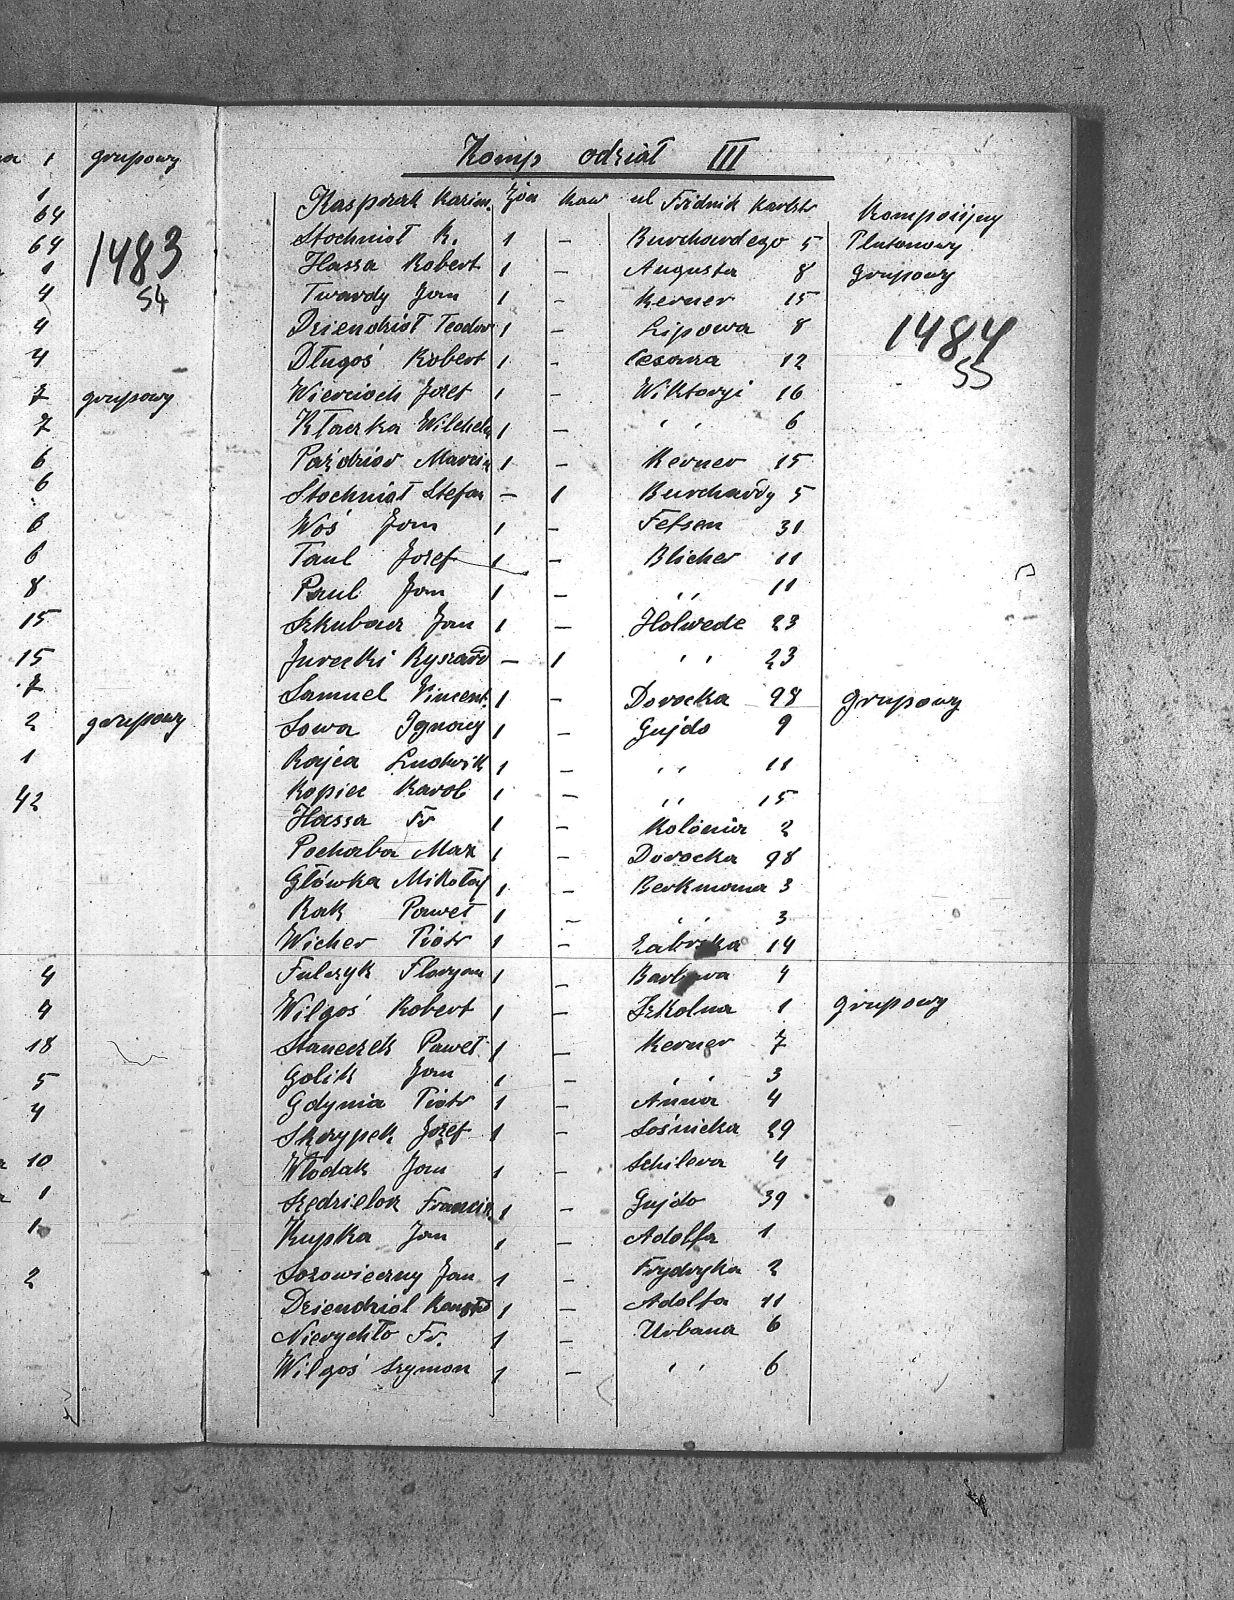 1
grupowy
1
64
64
1483
54
1
4
4
4
7 grupowy
7
6
6
6
6
8
15
15
7
2 grupowy
1
42
4
4
18
5
4
10
1
1
2
Komp odział III
Kasperek Kazim. żon kaw ul Frídrik Karlstr Kompoíijny
Stochniół K. 1 – Burchardego 5 Plutonowy
Hassa Robert 1 – Augusta 8 grupowy
Twardy Jan 1 – Kerner 15
1484
55
Dziendziół Teodor 1 – Lipowa 8
Długoś Robert 1 – Cesarza 12
Wiercioch Jozef 1 – Wiktoryi 16
Kłaczka Wilchelm 1 – ,, 6
Paździór Marcin 1 – Kerner 15
Stochniół Stefan – 1 Burchardy 5
Woś Jan 1 – Felsen 31
Taul Jozef 1 – Blicher 11
Paul Jan 1 – ,, 11
Szkubacz Jan 1 – Holwede 23
Jurecki Ryszard – 1 ,, 23
Samuel Vincent. 1 – Dorocka 98 grupowy
Sowa Ignacy 1 – Gujdo 9
Rajca Ludwik 1 – ,, 11
Kopiec Karol 1 – ,, 15
Hassa Fr 1 – Kolonia 2
Pochaba Max 1 – Dorocka 98
Główka Mikołaj 1 – Berkmana 3
Rak Paweł 1 – ,, 3
Wicher Piotr 1 – Zabrska 14
Fulczyk Floryan 1 – Barbara 4
Wilgoś Robert 1 – Szkolna 1 grupowy
Staneczek Paweł 1 – Kerner 7
Golik Jan 1 – ,, 3
Gdynia Piotr 1 – Anna 4
Skrzypek Jozef 1 – Sośnicka 29
Włodak Jan 1 – Schilera 4
Szędzielorz Francis 1 – Gujdo 39
Kupka Jan 1 – Adolfa 1
Sozowieczny Jan 1 – Frydryka 2
Dziendziol 1 – Adolfa 11
Nierychło Fr. 1 – Urbana 6
Wilgoś Szymon 1 – ,, 6